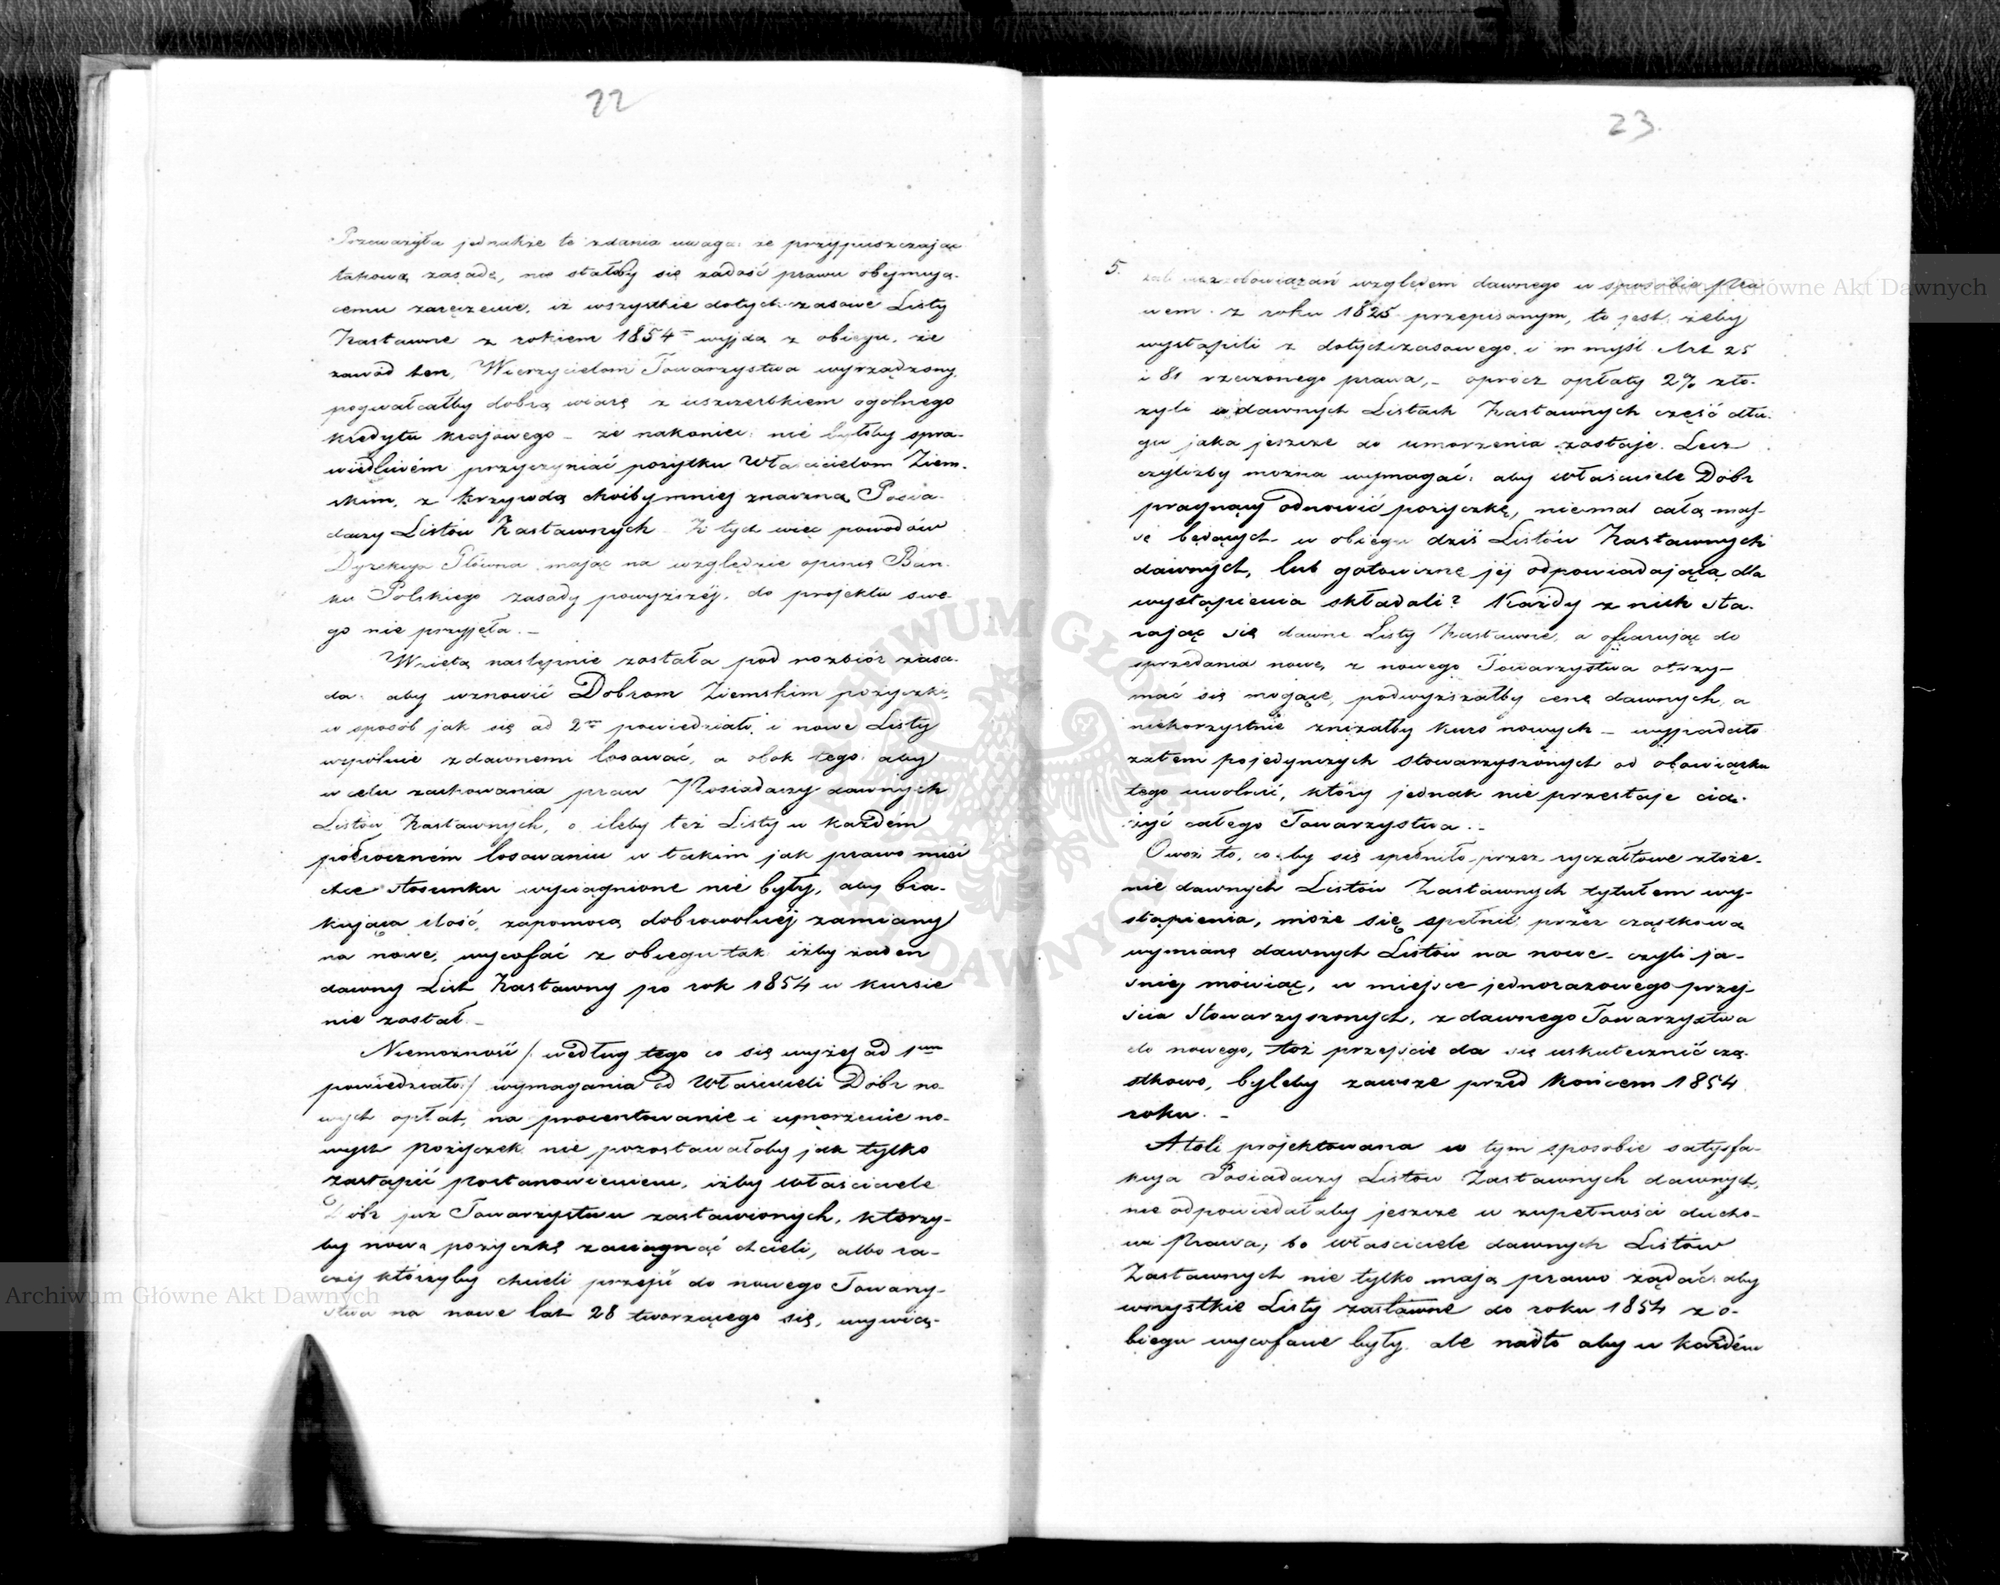 22
Przeważyła jednakże te zdania uwaga: że przypuszczając
takową zasadę, nie stałoby się zadość prawu obejmują-
cemu zaręczenie, iż wszystkie dotychczasowe Listy
Zastawne z rokiem 1854 wyjdą z obiegu, że
zawód ten, Wierzycielom Towarzystwa wyrządzony,
pogwałcałby dobrą wiarę z uszczerbkiem ogólnego
kredytu krajowego – że nakoniec nie byłoby spra-
wiedliwém przyczyniać pożytku Właścicielom Ziem-
skim, z krzywdą choćby mniej znaczną Posia-
daczy Listów Zastawnych. Z tych więc powodów
Dyrekcya Główna mając na względzie opinię Ban-
ku Polskiego zasady powyższéj, do projektu swe-
go nie przyjęła. –
Wzięta następnie została pod rozbiór zasa-
da: aby wznowić Dobrom Ziemskim pożyczki,
w sposób jak się ad 2um powiedziało, i nowe Listy
wspólnie z dawnemi losować, a obok tego: aby
w celu zachowania praw Posiadaczy dawnych
Listów Zastawnych, o ileby też Listy w każdém
półroczném losowaniu w takim jak prawo mieć
chce stosunku wyciągnione nie były, aby bra-
kującą ilość, zapomocą dobrowolnéj zamiany
na nowe, wycofać z obiegu tak iżby żaden
dawny List Zastawny po rok 1854 w kursie
nie został. –
Niemożność /: według tego co się wyżej ad 1um
powiedziało :/ wymagania od Właścicieli Dóbr no-
wych opłat, na procentowanie i umorzenie no-
wych pożyczek nie pozostawałoby jak tylko
zastąpić postanowieniem, iżby Właściciele
Dóbr już Towarzystwu zastawionych, którzy-
by nową pożyczkę zaciągnąć chcieli, albo ra-
czéj którzyby chcieli przejść do nowego Towarzy-
stwa na nowe lat 28 tworzącego się, wywią-
23.
5.
zali się z zobowiązań względem dawnego w sposobie Pra-
wem z roku 1825 przepisanym, to jest: żeby
wystąpili z dotychczasowego, i w myśl Art 25
i 81 rzeczonego prawa, – oprócz opłaty 2% zło-
żyli w dawnych Listach Zastawnych część dłu-
gu jaka jeszcze do umorzenia zostaje. Lecz
czyliżby można wymagać: aby Właściciele Dóbr
pragnący odnowić pożyczkę, niemal całą mas-
sę będących w obiegu dziś Listów Zastawnych
dawnych, lub gotowiznę jéj odpowiadającą dla
wystąpienia składali? Każdy z nich sta-
rając się dawne Listy Zastawne, a ofiarując do
sprzedania nowe, z nowego Towarzystwa otrzy-
mać się mogące, podwyższałby cenę dawnych, a
niekorzystnie zniżałby kurs nowych – wypadało
zatém pojedynczych stowarzyszonych od obowiązku
tego uwolnić, który jednak nie przestaje cią-
żyć całego Towarzystwa. –
Owoż to, coby się spełniło przez ryczałtowe złoże-
nie dawnych Listów Zastawnych tytułem wy-
stąpienia, może się spełnić przez cząstkową
wymianę dawnych Listów na nowe – czyli ja-
śniéj mówiąc, w miejsce jednorazowego przej-
ścia Stowarzyszonych, z dawnego Towarzystwa
do nowego, toż przejście da się uskutecznić czą-
stkowo, byleby zawsze przed końcem 1854
roku. –
Atoli projektowana w tym sposobie satysfa-
kcya Posiadaczy Listów Zastawnych dawnych,
nie odpowiedałaby jeszcze w zupełności ducho-
wi Prawa; bo właściciele dawnych Listów
Zastawnych nie tylko mają prawo żądać: aby
wszystkie Listy zastawne do roku 1854 z o-
biegu wycofane były, ale nadto aby w każdém
Archiwum Główne Akt Dawnych
Archiwum Główne Akt Dawnych
ARCHIWUM GŁÓWNE AKT DAWNYCH